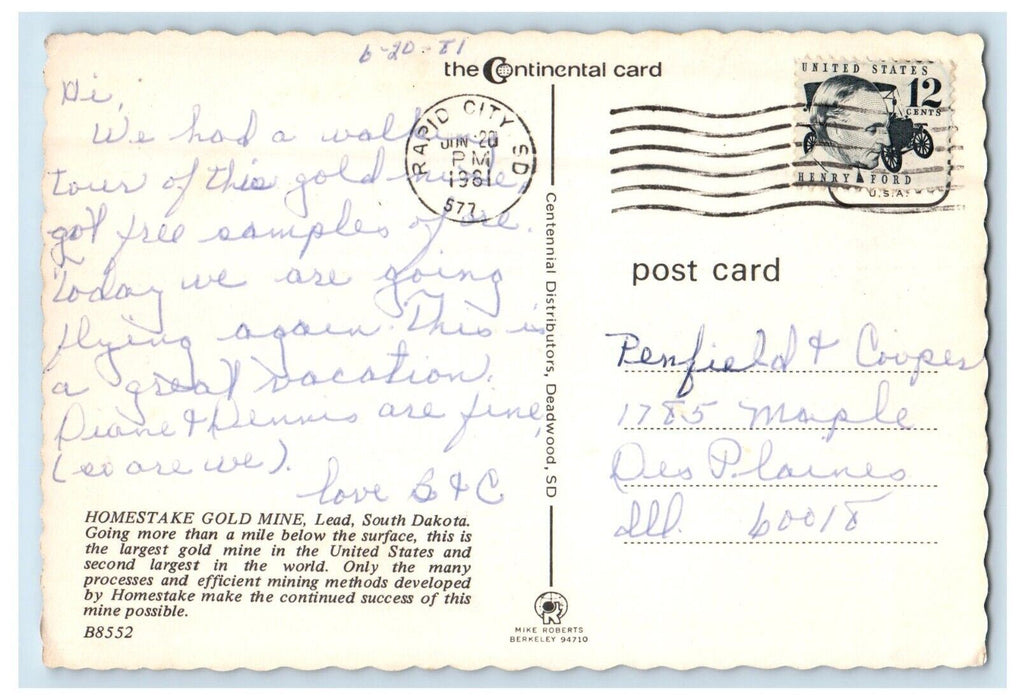 6-20-81
the Continental card
Hi,
We had a walking
tour of this gold mine,
got free samples of ore.
Today we are going
flying again. This is
a great vacation.
Diane & Dennis are fine,
(so are we).
love B & C
HOMESTAKE GOLD MINE, Lead, South Dakota.
Going more than a mile below the surface, this is
the largest gold mine in the United States and
second largest in the world. Only the many
processes and efficient mining methods developed
by Homestake make the continued success of this
mine possible.
B8552
RAPID CITY, SD
JUN 20
PM
1981
577
Centennial Distributors, Deadwood, SD
MIKE ROBERTS
BERKELEY 94710
UNITED STATES
12
CENTS
HENRY FORD
U.S.A.
post card
Penfield & Cooper
1785 Maple
Des Plaines
Ill. 60018